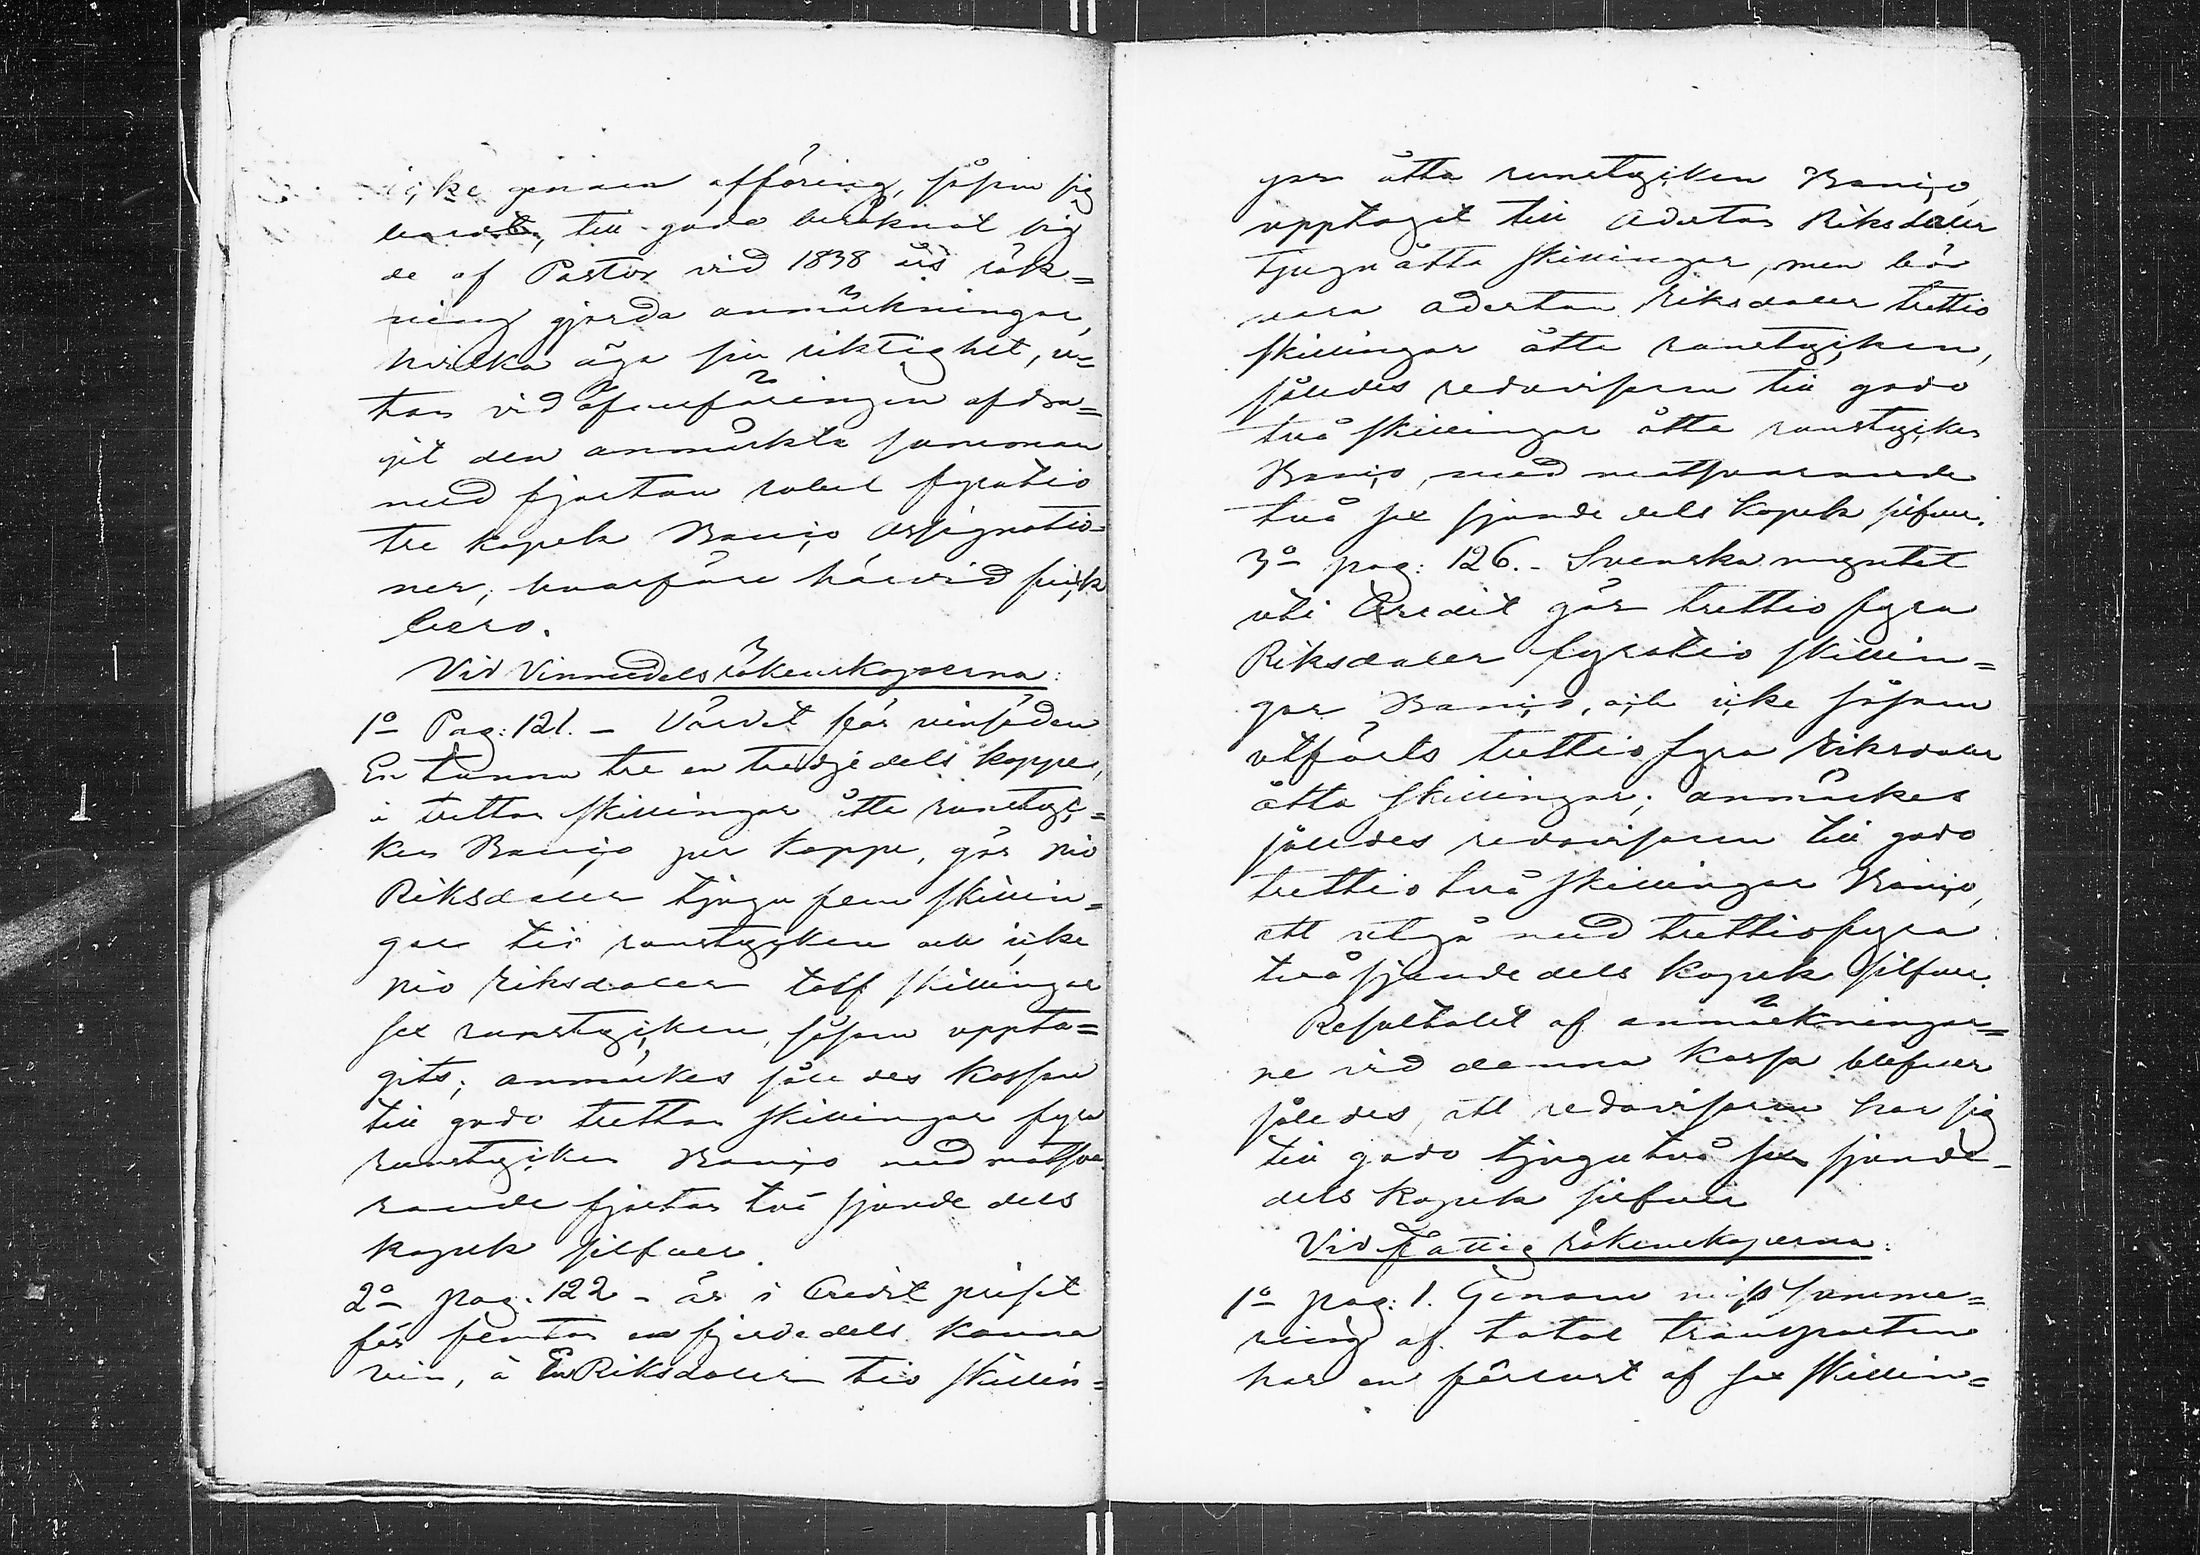 icke genom afföring, såsom sig
bordt, till godo beräknat sig
de af Pastor vid 1838 års räk=
ning gjorda anmärkningar,
hvilka äga sin riktighet, u=
tan vid öfverföringen afdra=
git den anmärkta summan
med fjorton rubel fyratio
tre kopek Banco assignatio=
ner, hvarföre härvid fick
bero.
Vid Vinmedels räkenskaperna:
1o Pag: 121. – Värdet för vinsäden
En tunna tre en tredjedels kappe,
à tretton skillingar åtta runstyc=
ken Banco per kappe, gör nio
Riksdaler tjugu fem skillin=
gar tio runstycken och icke
nio Riksdaler tolf skillingar
sex runstycken, såsom uppta=
gits; anmärkes således kassan
till godo tretton skillingar fyra
runstycken Banco med motsva
rande fjorton två sjunde dels
kopek silfver.
2o pag. 122 – är i Credit priset
för femton en fjerdedels kanna
vin, à En Riksdaler tio skillin=
gar åtta runstycken Banco,
upptaget till Aderton Riksdaler
tjugu åtta skillingar, men bör
vara aderton Riksdaler trettio
skillingar åtta runstycken,
således redovisaren till godo
två skillingar åtta runstycken
Banco, med motsvarande
två sex sjunde dels kopek silfver.
3o pag: 126. – Svenska myntet
uti Credit gör trettio fyra
Riksdaler fyratio skillin=
gar Banco, och icke såsom
utförts trettio fyra Riksdaler
åtta skillingar; anmärkes
således redovisaren till godo
trettio två skillingar Banco,
att utgå med trettiofyra
två sjunde dels kopek silfver.
Resultatet af anmärkningar=
ne vid denna kassa blefver
således, att redovisaren har sig
till godo tjugutvå sex sjunde
dels kopek silfver
Vid fattig räkenskaperna:
1o pag: 1. Genom miss summe=
ring af total transporten
har en förlust af sex skillin=